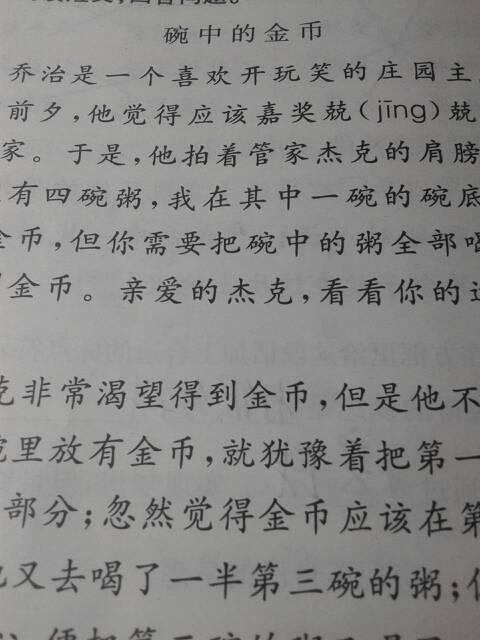 碗中的金币
乔治是一个喜欢开玩笑的庄园主
前夕,他觉得应该嘉奖兢(jīng)兢
家。于是,他拍着管家杰克的肩膀
有四碗粥,我在其中一碗的碗底
金币,但你需要把碗中的粥全部喝
金币。亲爱的杰克,看看你的运
克非常渴望得到金币,但是他不
碗里放有金币,就犹豫着把第一
部分;忽然觉得金币应该在第
又去喝了一半第三碗的粥;